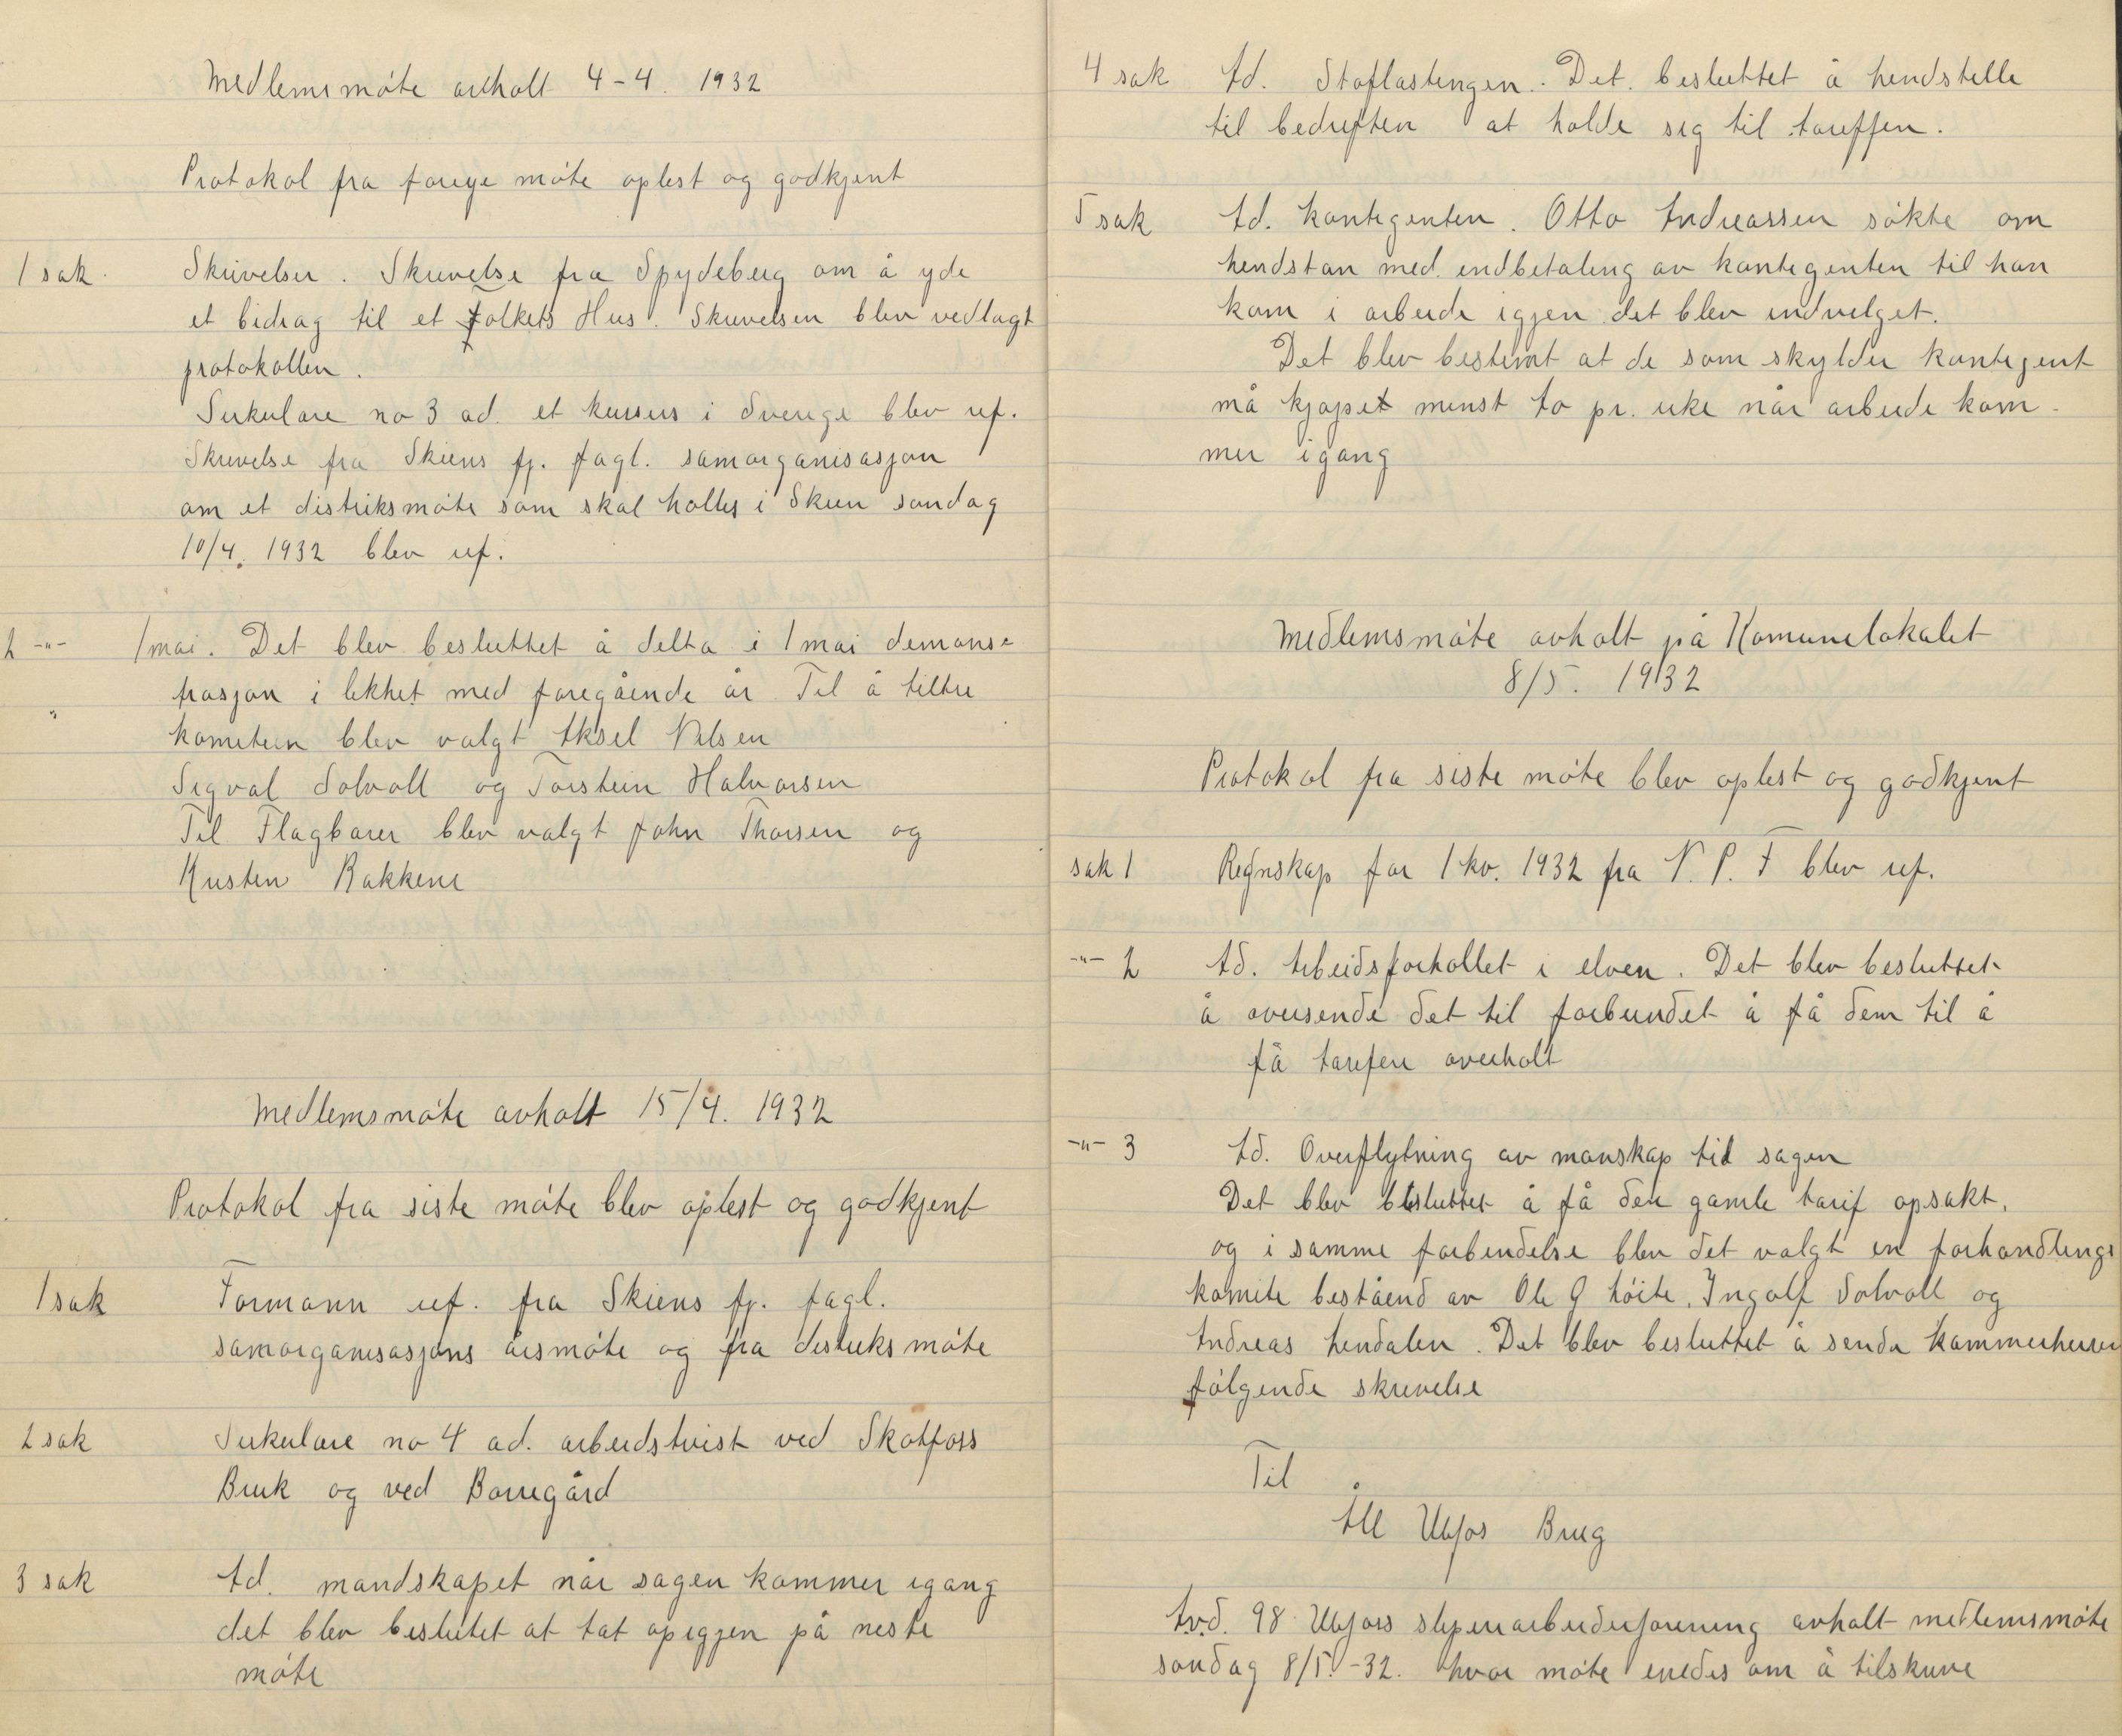 Medlemsmøte avholt 4-4. 1932
Protokol fra forrige møte oplest og godkjent
1 sak. Skrivelser. Skrivelse fra Spydeberg om å yde
et bidrag til et Folkets Hus. Skrivelsen blev vedlagt
protokollen.
Sirkulære no 3 ad. et kursus i Sverige blev ref.
Skrivelse fra Skiens fj. fagl. samorganisasjon
om et distriksmøte som skal holtes i Skien søndag
10/4. 1932 blev ref.
2 -"- 1 mai. Det blev besluttet å delta i 1 mai demons-
trasjon i likhet med foregående år. Til å tiltre
komiteen blev valgt Aksel Nilsen
Sigval Solvoll og Torstein Halvorsen
Til Flagbærer blev valgt John Thorsen og
Kristen Bakkene
Medlemsmøte avholt 15/4. 1932
Protokol fra siste møte blev oplest og godkjent
1 sak Formann ref. fra Skiens fj. fagl.
samorganisasjons årsmøte og fra distriksmøte
2 sak Sirkulære no 4 ad. arbeidstvist ved Skotfoss
Bruk og ved Borregård
3 sak Ad. mandskapet når sagen kommer igang
det blev beslutet at tat opigjen på neste
møte
4 sak Ad. Stoflastingen. Det. besluttet å henstille
til bedriften at holde sig til tariffen.
5 sak Ad. kontigenten. Otto Andreassen søkte om
hendstan med indbetaling av kontigenten til han
kom i arbeide igjen det blev indvilget.
Det blev bestemt at de som skylder kontigent
må kjøpet minst to pr. uke når arbeide kom-
mer igang
Medlemsmøte avholt på Komunelokalet
8/5. 1932
Protokol fra siste møte blev oplest og godkjent
sak 1 Regnskap for 1 kv. 1932 fra N. P. F blev ref.
-"- 2 Ad. Arbeidsforhollet i elven. Det blev besluttet
å oversende det til forbundet å få dem til å
få tarifen overholt
-"- 3 Ad. Overflytning av manskap til sagen
Det blev besluttet å få den gamle tarif opsakt,
og i samme forbindelse blev det valgt en forhandlings
komite beståend av Ole G Høite, Ingolf Solvoll og
Andreas Hendalen. Det blev besluttet å sende Kammerherren
følgende skrivelse
Til
A/l Ulefos Brug
Avd. 98 Ulefoss sliperiarbeiderforening avholt medlemsmøte
søndag 8/5.-32. hvor møte enedes om å tilskrive